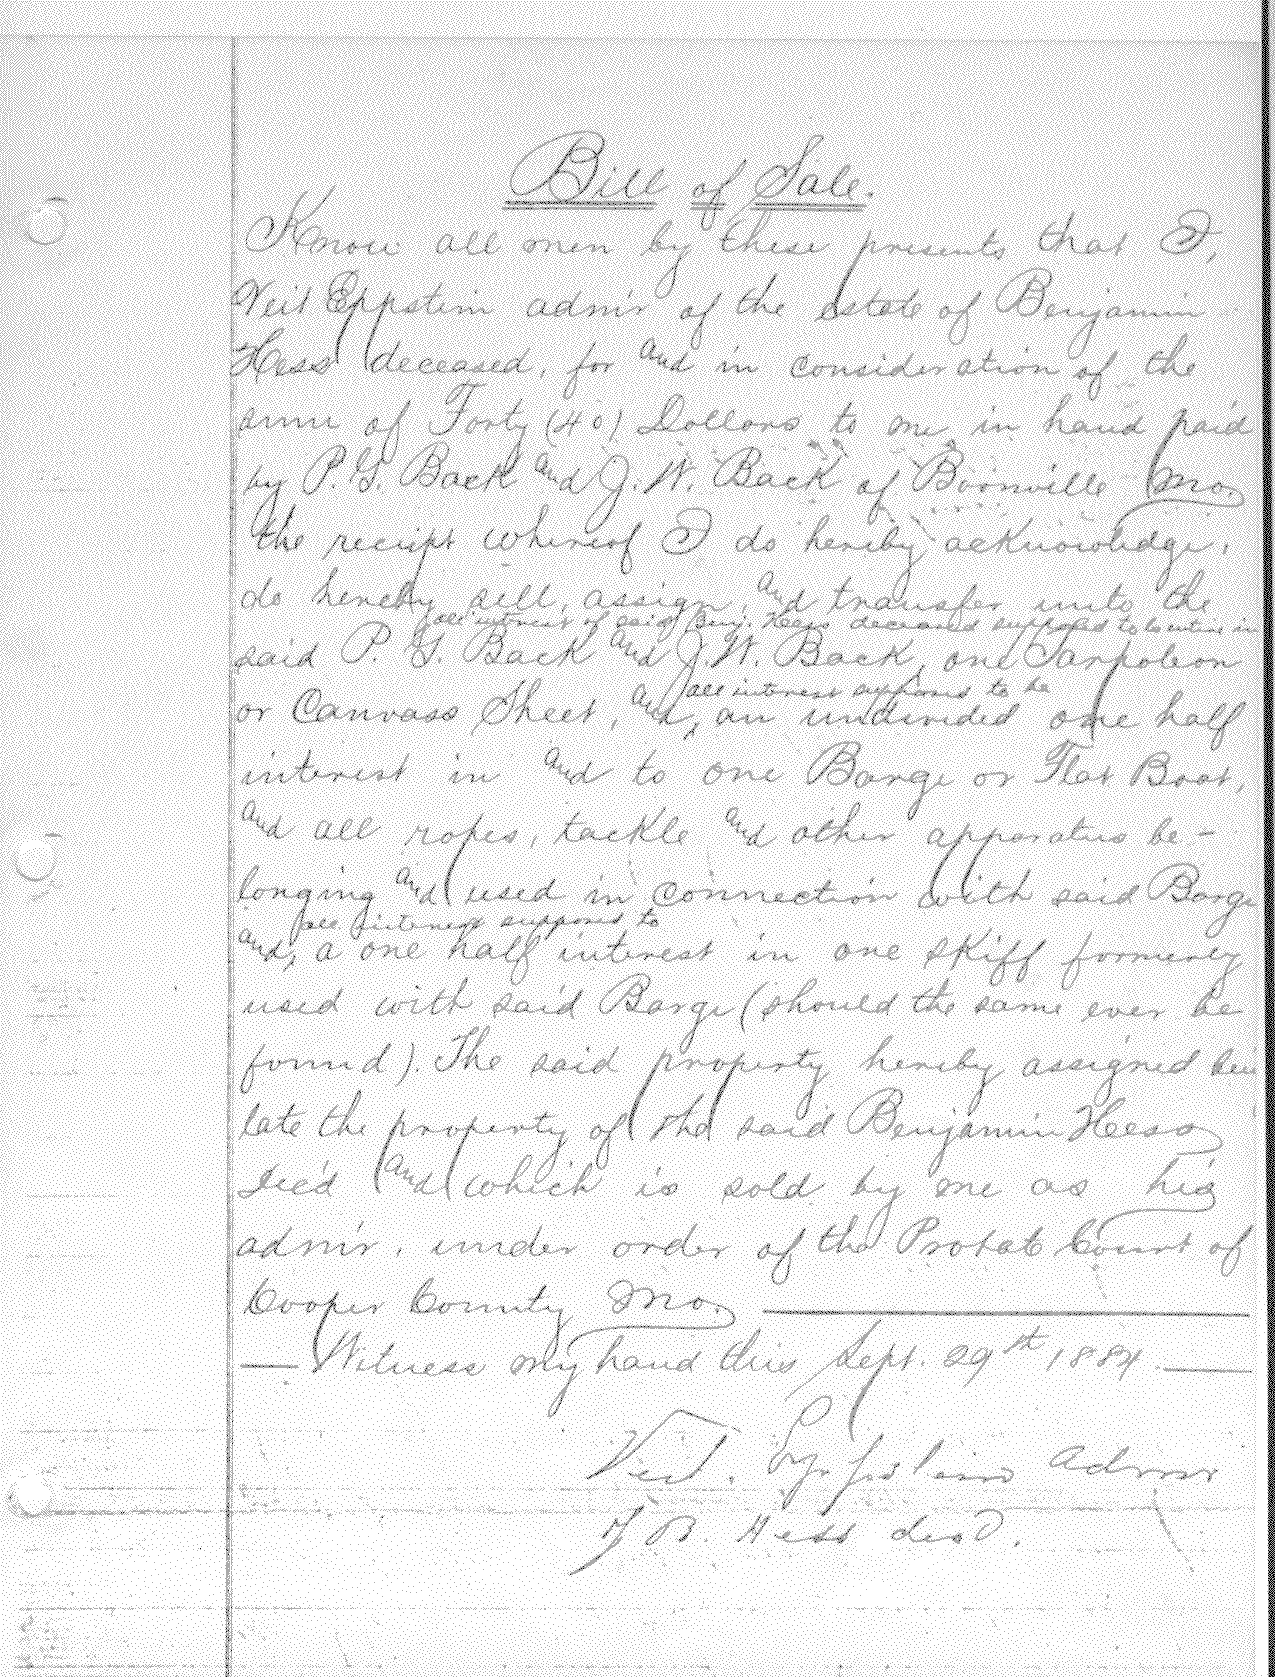 Bill of Sale.
Know all men by these presents that I,
Veit Eppstein admr of the Estate of Benjamin
Hess deceased, for and in consideration of the
sum of Forty (40) Dollars to me in hand paid
by P. G. Back and J. W. Back of Boonville Mo.
the receipt whereof I do hereby acknowledge,
do hereby sell, assign, and transfer unto the
all interest of said Benj. Hess deceased supposed to be entire in
said P. G. Back and J. W. Back, one Tarpoleon
all interest supposed to be
or Canvass Sheet, and, an undivided one half
interest in and to one Barge or Flat Boat,
and all ropes, tackle and other apparatus be-
longing and used in connection with said Barge
all interest supposed to
and, a one half interest in one skiff formerly
used with said Barge (should the same ever be
found). The said property hereby assigned bein
late the property of the said Benjamin Hess
dec'd and which is sold by me as his
admr. under order of the Probate Court of
Cooper County Mo.
Witness my hand this Sept. 29th 1884.
Veit. Eppstein Admr
of B. Hess decd.